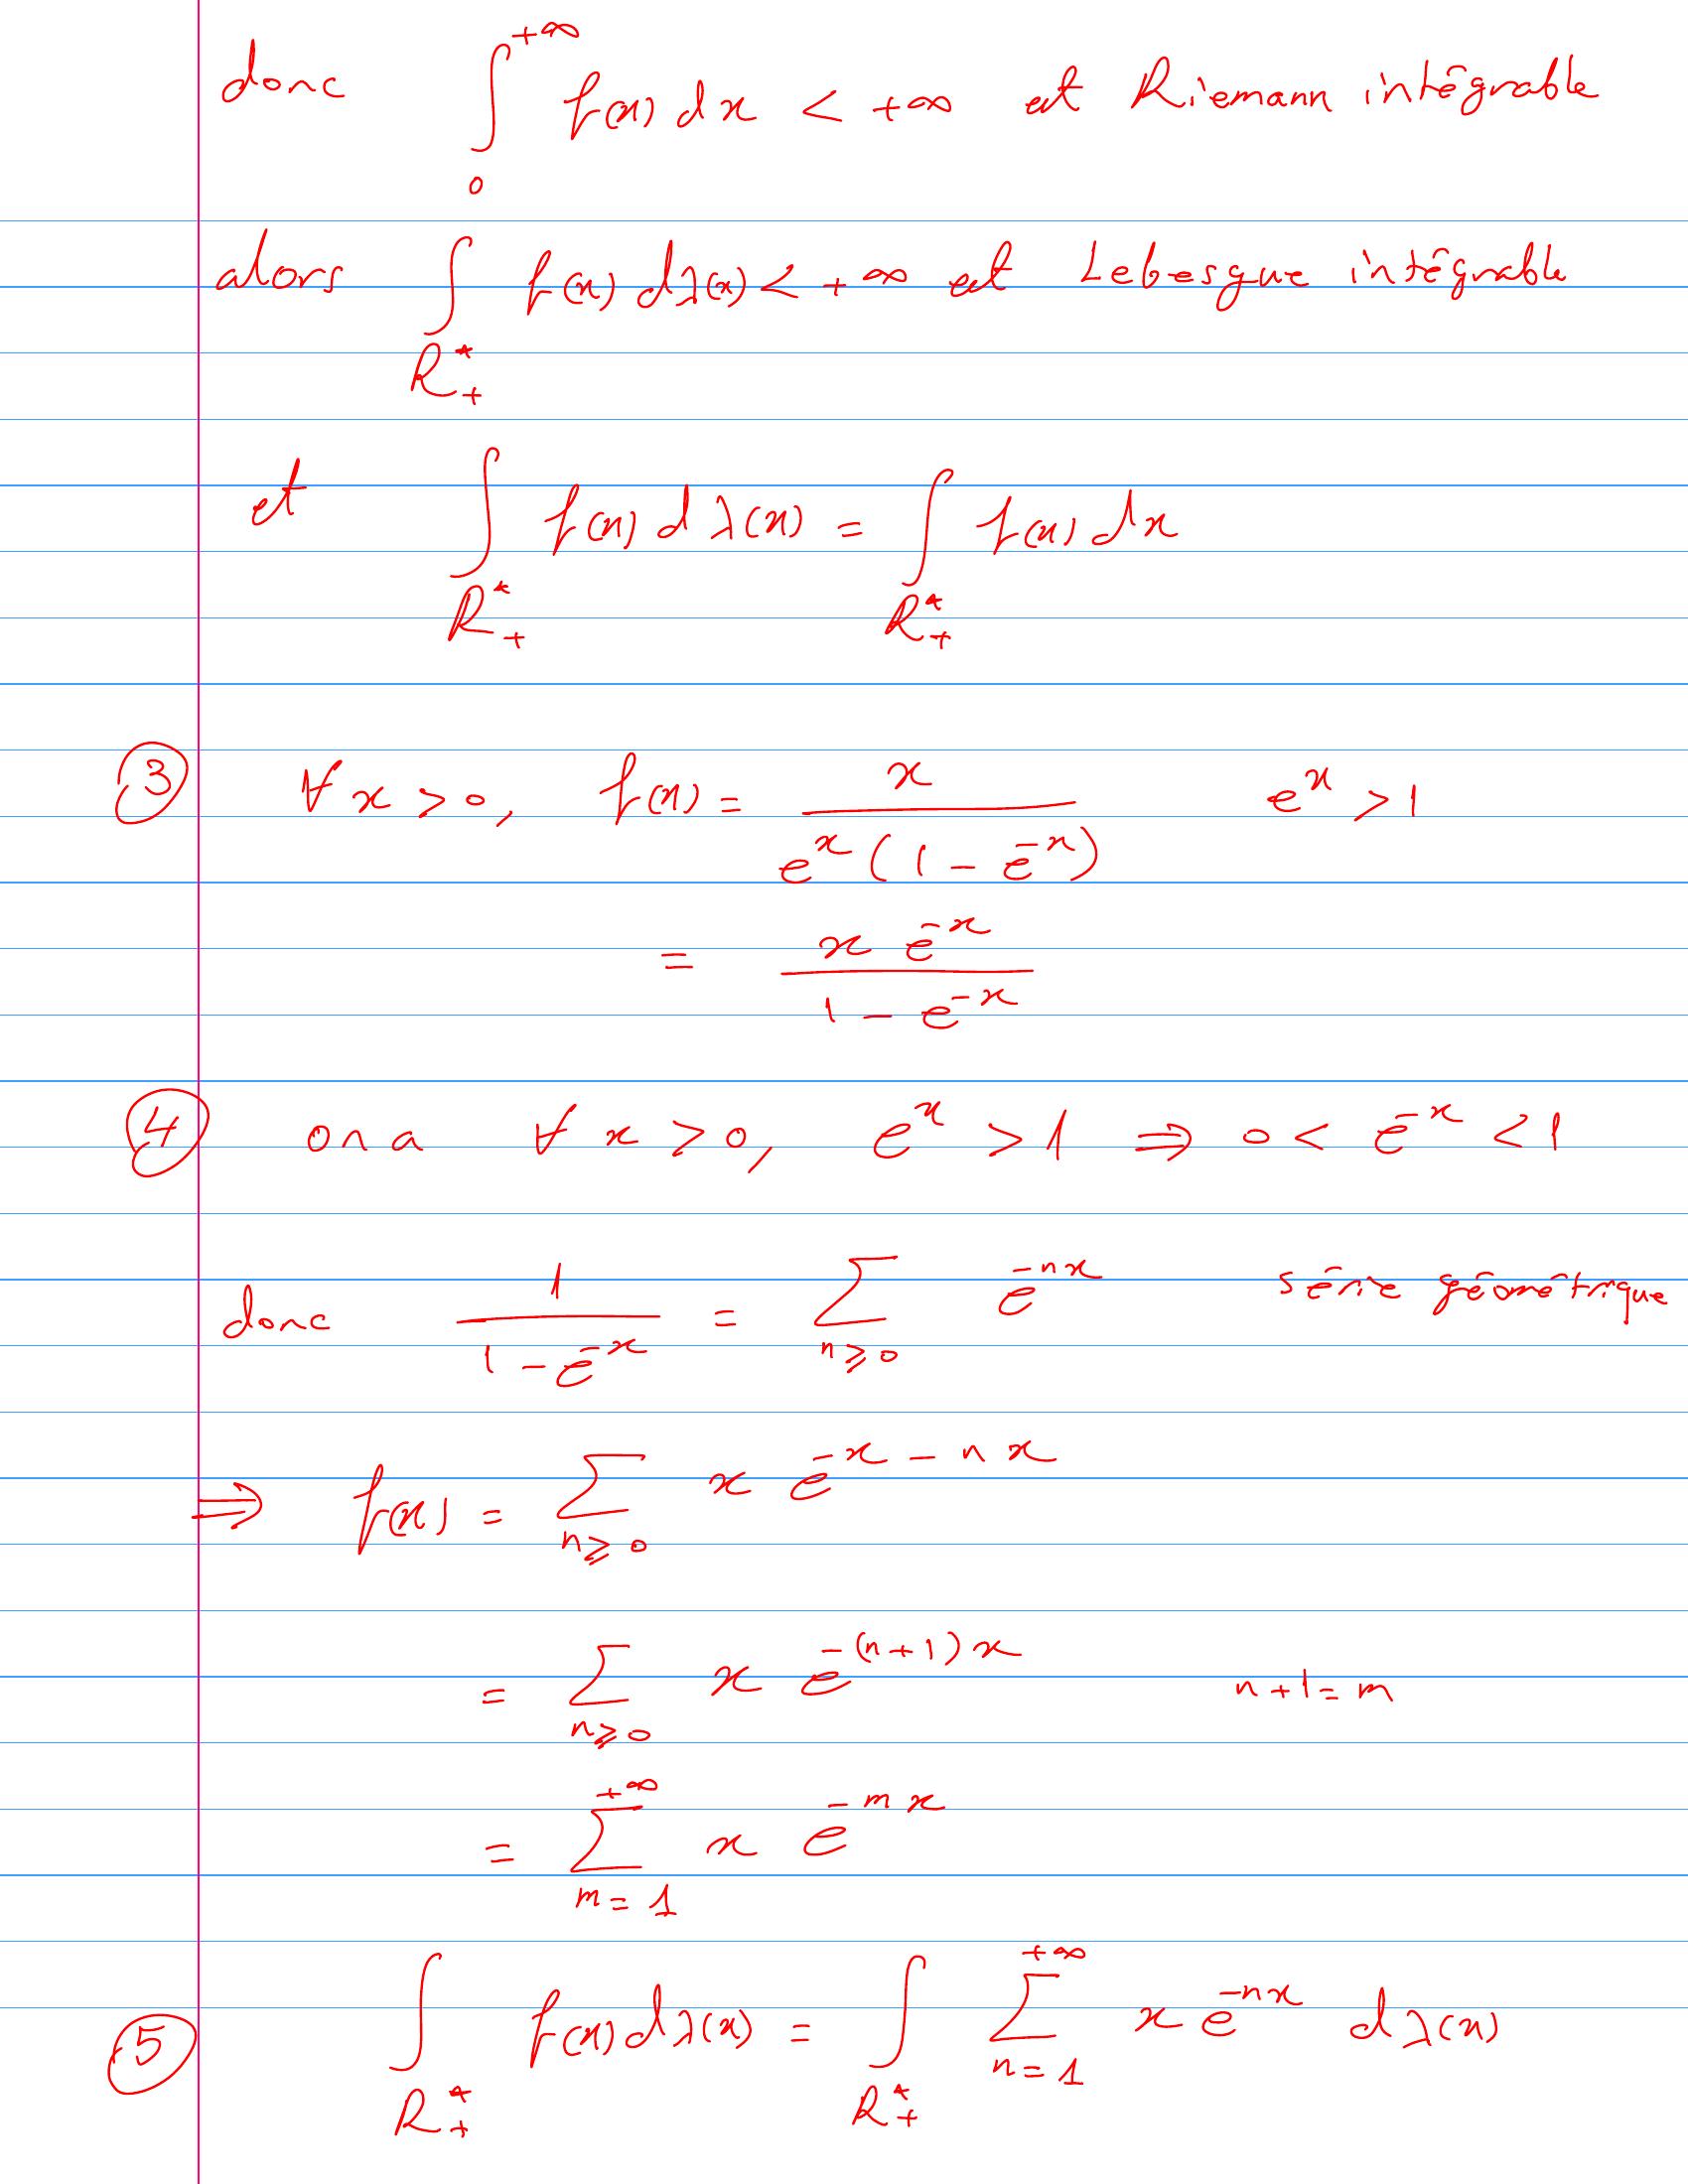 donc ∫₀^{+∞} f(x) dx < +∞ est Riemann intégrable
alors ∫_{R₊*} f(x) dλ(x) < +∞ est Lebesgue intégrable
et ∫_{R₊*} f(x) dλ(x) = ∫_{R₊*} f(x) dx
③ ∀ x > 0, f(x) = x / (e^x (1 - e^{-x})) e^x > 1
= x e^{-x} / (1 - e^{-x})
④ on a ∀ x > 0, e^x > 1 ⇒ 0 < e^{-x} < 1
donc 1 / (1 - e^{-x}) = ∑_{n⩾0} e^{-nx} série géométrique
⇒ f(x) = ∑_{n⩾0} x e^{-x - nx}
= ∑_{n⩾0} x e^{-(n+1)x} n+1 = m
= ∑_{m=1}^{+∞} x e^{-mx}
⑤ ∫_{R₊*} f(x) dλ(x) = ∫_{R₊*} ∑_{n=1}^{+∞} x e^{-nx} dλ(x)